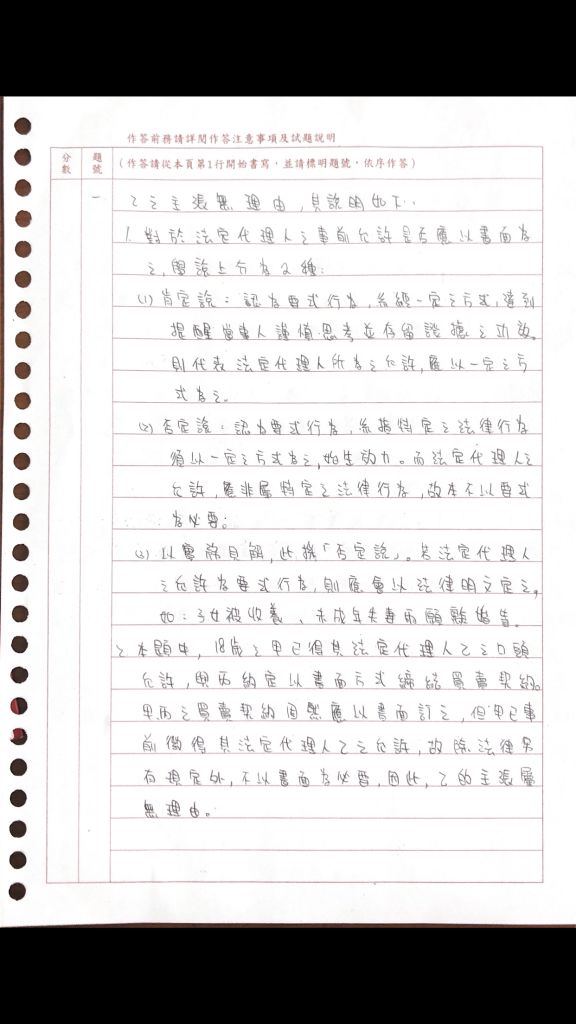 作答前務請詳閱作答注意事項及試題說明
分數
題號
(作答請從本頁第1行開始書寫，並請標明題號，依序作答)
一 乙之主張無理由，其說明如下：
1. 對於法定代理人之事前允許是否應以書面為
之，學說上分為2種：
(1) 肯定說：認為要式行為，係經一定之方式，達到
提醒當事人謹慎思考並存留證據之功效。
則代表法定代理人所為之允許，應以一定之方
式為之。
(2) 否定說：認為要式行為，係指特定之法律行為
須以一定之方式為之，始生效力。而法定代理人之
允許，並非屬特定之法律行為，故本不以要式
為必要。
(3) 以實務見解，此採「否定說」。若法定代理人
之允許為要式行為，則應會以法律明文定之，
如：子女被收養、未成年夫妻兩願離婚等。
2. 本題中，18歲之甲已得其法定代理人乙之口頭
允許，與丙約定以書面方式締結買賣契約。
甲丙之買賣契約固然應以書面訂之，但甲已事
前徵得其法定代理人乙之允許，故除法律另
有規定外，不以書面為必要，因此，乙的主張屬
無理由。